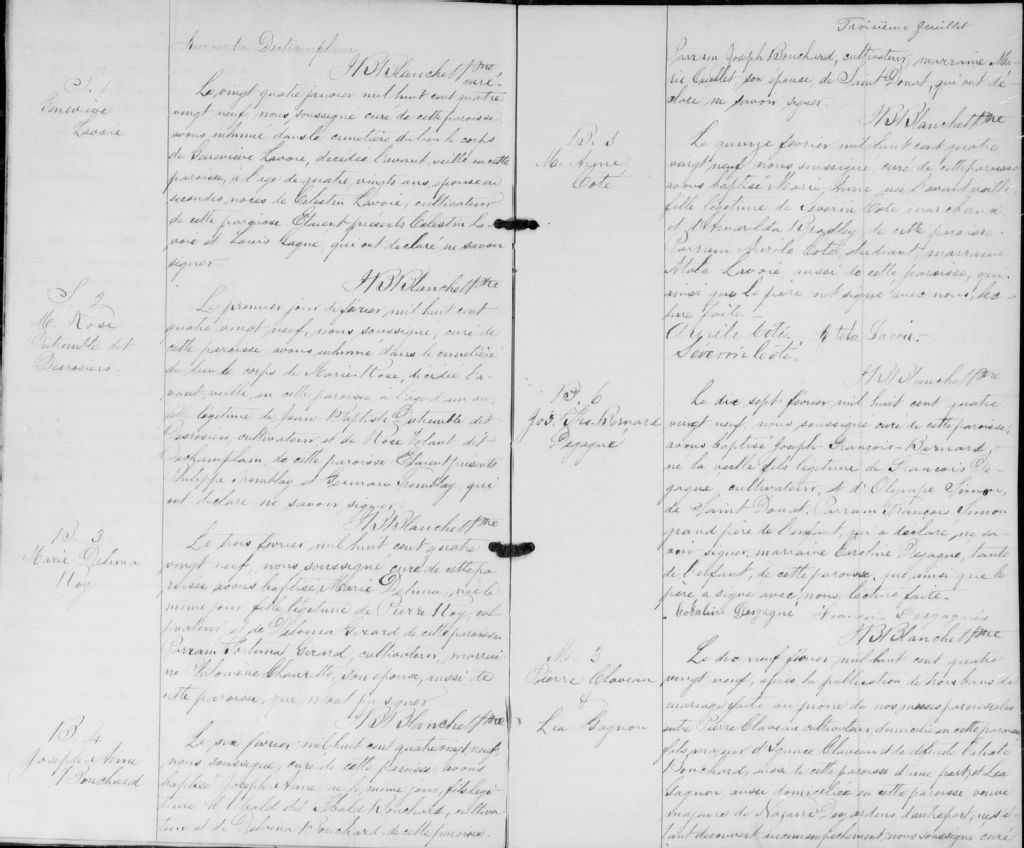 Amanda Dechamplain
JBBlanchet Ptre
curé
S. 1
Geneviève
Lavoie
Le vingt quatre janvier mil huit cent quatre
vingt neuf, nous soussigné curé de cette paroisse
avons inhumé dans le cimetière du lieu le corps
de Geneviève Lavoie, décédée l'avant veille en cette
paroisse, à l'age de quatre vingts ans, épouse en
secondes noces de Célestin Lavoie, cultivateur
de cette paroisse Etaient présents Célestin La-
voie et Louis Gagné, qui ont déclaré ne savoir
signer
JBBlanchet Ptre
S. 2
M. Rose
Dutremble dit
Desrosiers
Le premier jour de février, mil huit cent
quatre vingt neuf, nous soussigné, curé de
cette paroisse avons inhumé dans le cimetière
du lieu le corps de Marie Rose, décédée l'a-
vant veille, en cette paroisse à l'age d'un an
fille légitime de Jean Baptiste Dutremble dit
Desrosiers, cultivateur et de Rose Volant dit
Dechamplain, de cette paroisse Etaient présents
Philippe Tremblay et Germain Tremblay, qui
ont déclaré ne savoir signer
JBBlanchet Ptre
B. 3
Marie Delima
Roy
Le trois février, mil huit cent quatre
vingt neuf, nous soussigné curé de cette pa-
roisse avons baptisé Marie Delima, née le
même jour fille légitime de Pierre Roy, cul-
tivateur, et de Delvina Girard, de cette paroisse
Parrain Fortunat Girard, cultivateur, marrai-
ne Philomène Chourette, son épouse, aussi de
cette paroisse, qui n'ont pu signer
JBBlanchet Ptre
B. 4
Joseph Aimé
Bouchard
Le six février mil huit cent quatre vingt neuf
nous soussigné, curé de cette paroisse avons
baptisé Joseph Aimé né le même jour, fils légi-
time d'Ubald Bouchard, cultiva-
teur et de Delvina Bouchard, de cette paroisse.
Troisième feuillet
Parrain Joseph Bouchard, cultivateur, marraine Ma-
rie Ouellet, son épouse, de Saint Donat, qui ont dé-
claré ne savoir signer
JBBlanchet Ptre
B. 5
M. Anne
Coté
Le quinze février mil huit cent quatre
vingt neuf nous soussigné curé de cette paroisse
avons baptisé Marie, Anne née l'avant veille
fille légitime de Severin Coté marchand
et d'Amarilda Bradley, de cette paroisse
Parrain Coté, étudiant, marraine
Atala Lavoie aussi de cette paroisse, qui
ainsi que le père ont signé avec nous, lec-
ture faite
Coté. Atala Lavoie
Severin Coté.
JBBlanchet Ptre
B. 6
Jos. Frs. Bernard
Degagné
Le dix sept février mil huit cent quatre
vingt neuf, nous soussigné curé de cette paroisse,
avons baptisé Joseph François Bernard,
né la veille fils légitime de François De-
gagné, cultivateur, et d'Olympe Simon,
de Saint Donat. Parrain François Simon
grand père de l'enfant, qui a déclaré ne sa-
voir signer, marraine Caroline Degagné, tante
de l'enfant, de cette paroisse, qui ainsi que le
père a signé avec nous lecture faite
Coraline Desgagné François Desgagnés
JBBlanchet Ptre
M. 3
Pierre Claveau
&
Lea Gagnon
Le dix neuf février mil huit cent quatre
vingt neuf, après la publication de trois bans de
mariage faite au prône de nos messes paroissiales
entre Pierre Claveau cultivateur, domicilié en cette paroisse
fils majeur d'Ignace Claveau & de défunte
Bouchard, aussi de cette paroisse d'une part, et Lea
Gagnon aussi domiciliée en cette paroisse veuve
majeure de Nazaire Desjardins, d'autre part, ne s'é-
tant découvert aucun empêchement, nous soussigné curé